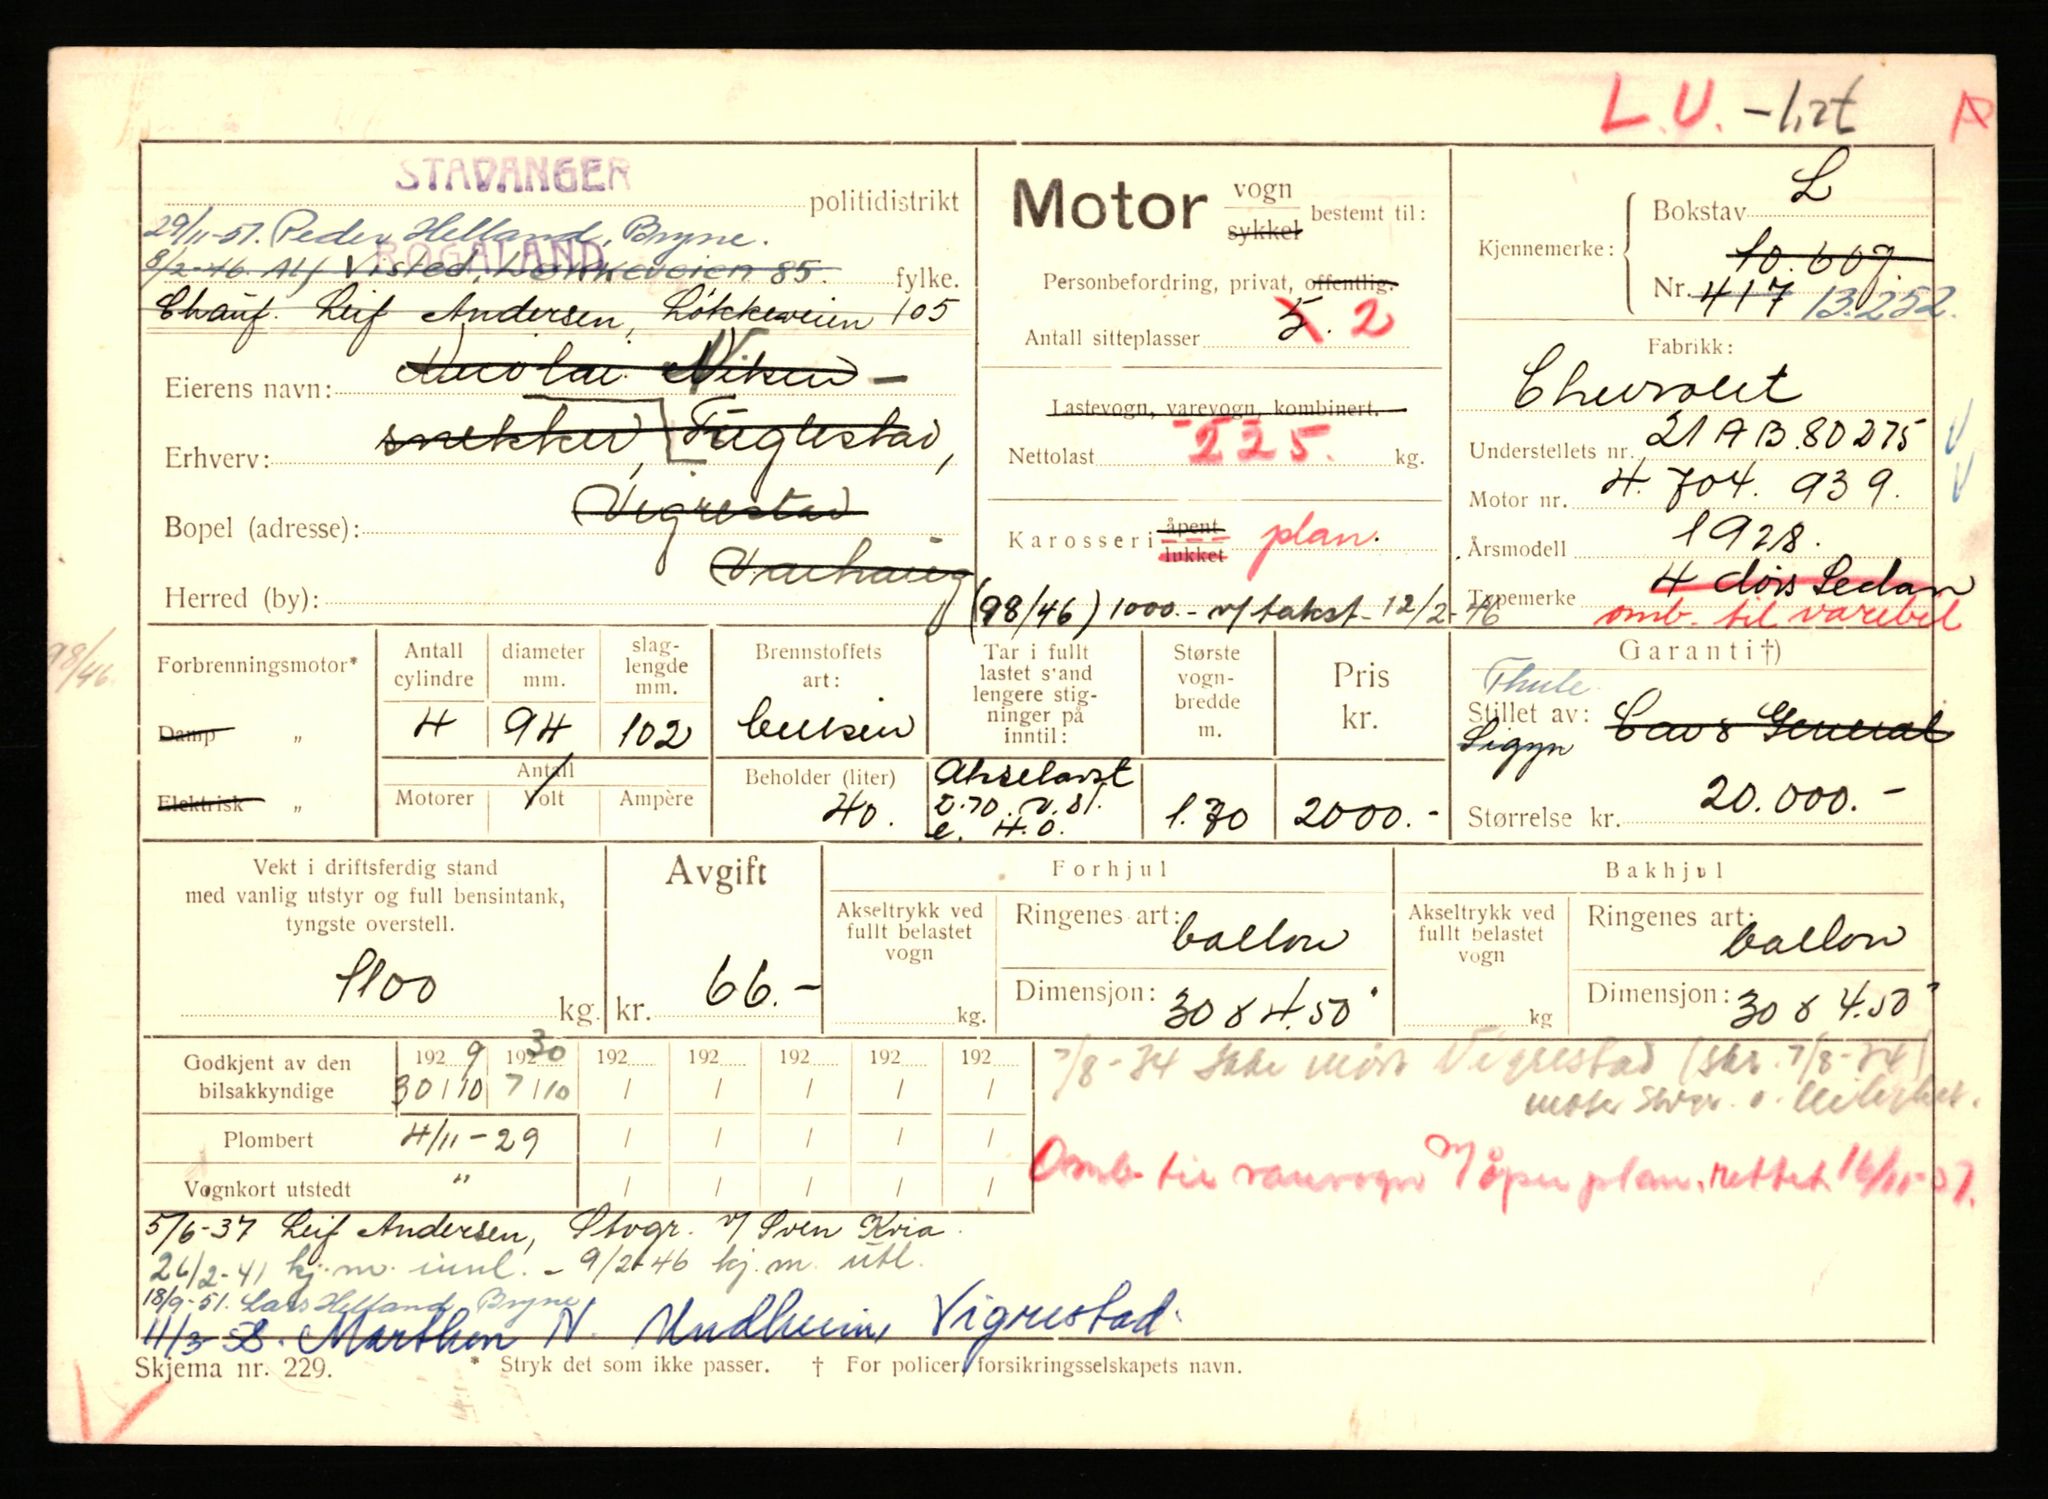 L.U. -
STAVANGER politidistrikt
29/11-51. Peder Helland, Bryne.
ROGALAND fylke.
8/2-46. Alf Visted, Løkkeveien 85.
Chauf. Leif Andersen, Løkkeveien 105
Eierens navn: Nicolai
Erhverv: snekker, Fuglestad,
Bopel (adresse): Vigrestad
Herred (by): Varhaug
Motor vogn sykkel bestemt til:
Personbefordring, privat, offentlig.
Antall sitteplasser 5. 2
Lastevogn, varevogn, kombinert.
Nettolast 225. kg.
Karosseri åpent lukket plan.
(98/46) 1000.- v/ takst 12/2-46
Kjennemerke: Bokstav L
10.607.
Nr. 417 13.252.
Fabrikk:
Chevrolet
Understellets nr. 21AB.80275
Motor nr. 4.704.939.
Årsmodell 1928.
Typemerke 4 dørs Sedan
omb. til varebil
98/46.
Forbrenningsmotor*
Damp „
Elektrisk „
Antall cylindre 4
diameter mm. 94
slaglengde mm. 102
Antall
Motorer Volt Ampère
Brennstoffets art:
bensin
Beholder (liter)
40.
Tar i fullt lastet stand lengere stigninger på inntil:
Største vognbredde m.
1.70
Pris kr.
2000.-
Garanti†)
Thule
Stillet av:
Sigyn
Størrelse kr. 20.000.-
Vekt i driftsferdig stand
med vanlig utstyr og full bensintank,
tyngste overstell.
1100 kg.
Avgift
kr. 66.-
Forhjul
Akseltrykk ved fullt belastet vogn
kg.
Ringenes art: ballon
Dimensjon: 30 x 4.50"
Bakhjul
Akseltrykk ved fullt belastet vogn
kg
Ringenes art: ballon
Dimensjon: 30 x 4.50"
Godkjent av den bilsakkyndige
1929 1930 192 192 192 192
30/10 7/10 / / / /
Plombert 4/11-29 / / / / /
Vognkort utstedt " / / / / /
7/8-34 Vigrestad (skr. 7/8-34)
Omb. til varevogn m/åpen plan. rettet 16/11-37.
5/6-37 Leif Andersen, Stvgr. v/ Sven Kvia.
26/2-41 kj.m. innl. - 9/2-46 kj.m. utl.
18/9-51. Lars Helland, Bryne
11/3-58. Marthon N. Undheim, Vigrestad.
Skjema nr. 229. * Stryk det som ikke passer. † For policer, forsikringsselskapets navn.